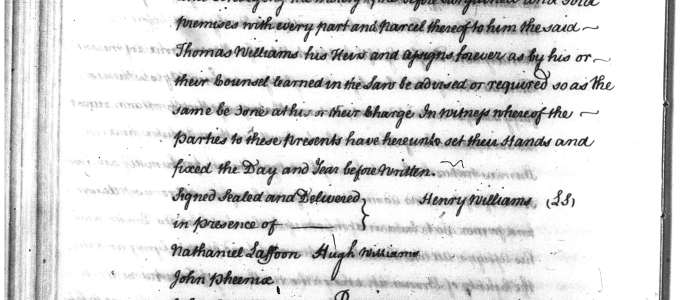 premises with every part and parcel thereof to him the said ~
Thomas Williams his Heirs and assigns forever as by his or ~
their Counsel Learned in the Law be advised or required so as the
same be done at his or their Charge In Witness whereof the ~
Parties to these Presents have hereunto set their Hands and
fixed the Day and Year before Written.
Signed Sealed and Delivered } Henry Williams (LS)
in presence of
Nathaniel Laffoon Hugh Williams
John Pheenix